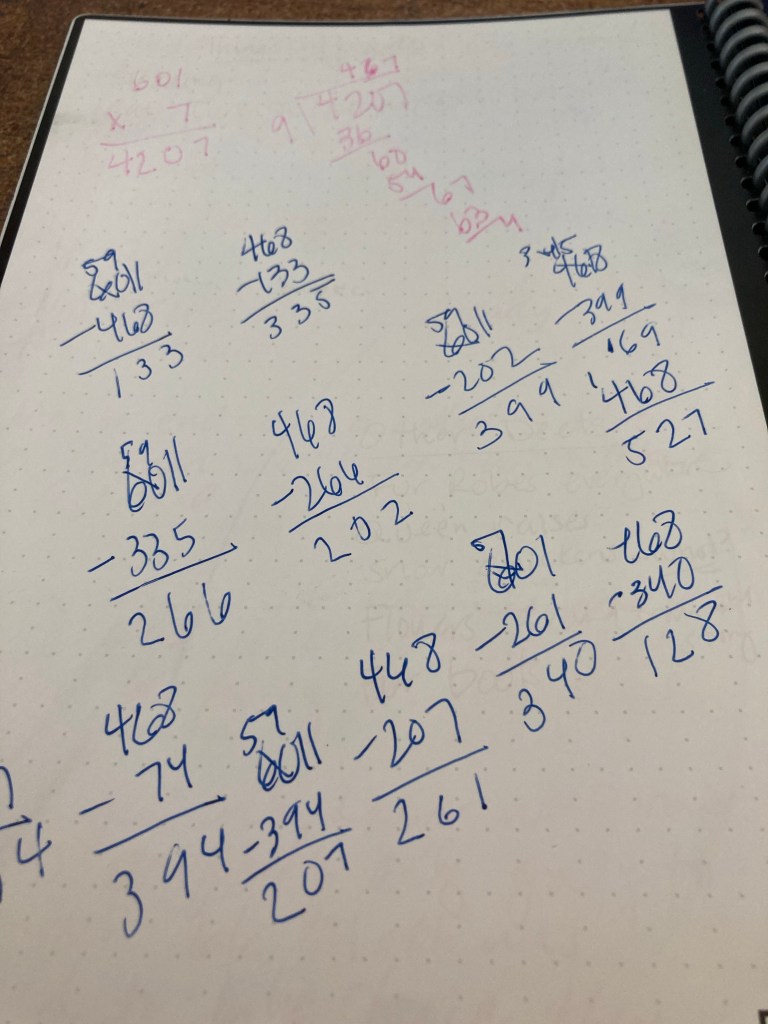 601
x 7
4207
467
9 4207
36
60
54
67
63
4
59
6011
-468
133
468
-133
335
59
6011
-202
399
468
-399
169
468
527
59
6011
-335
266
468
-266
202
601
-261
340
468
-340
128
468
- 74
394
59
6011
-394
207
468
-207
261
4